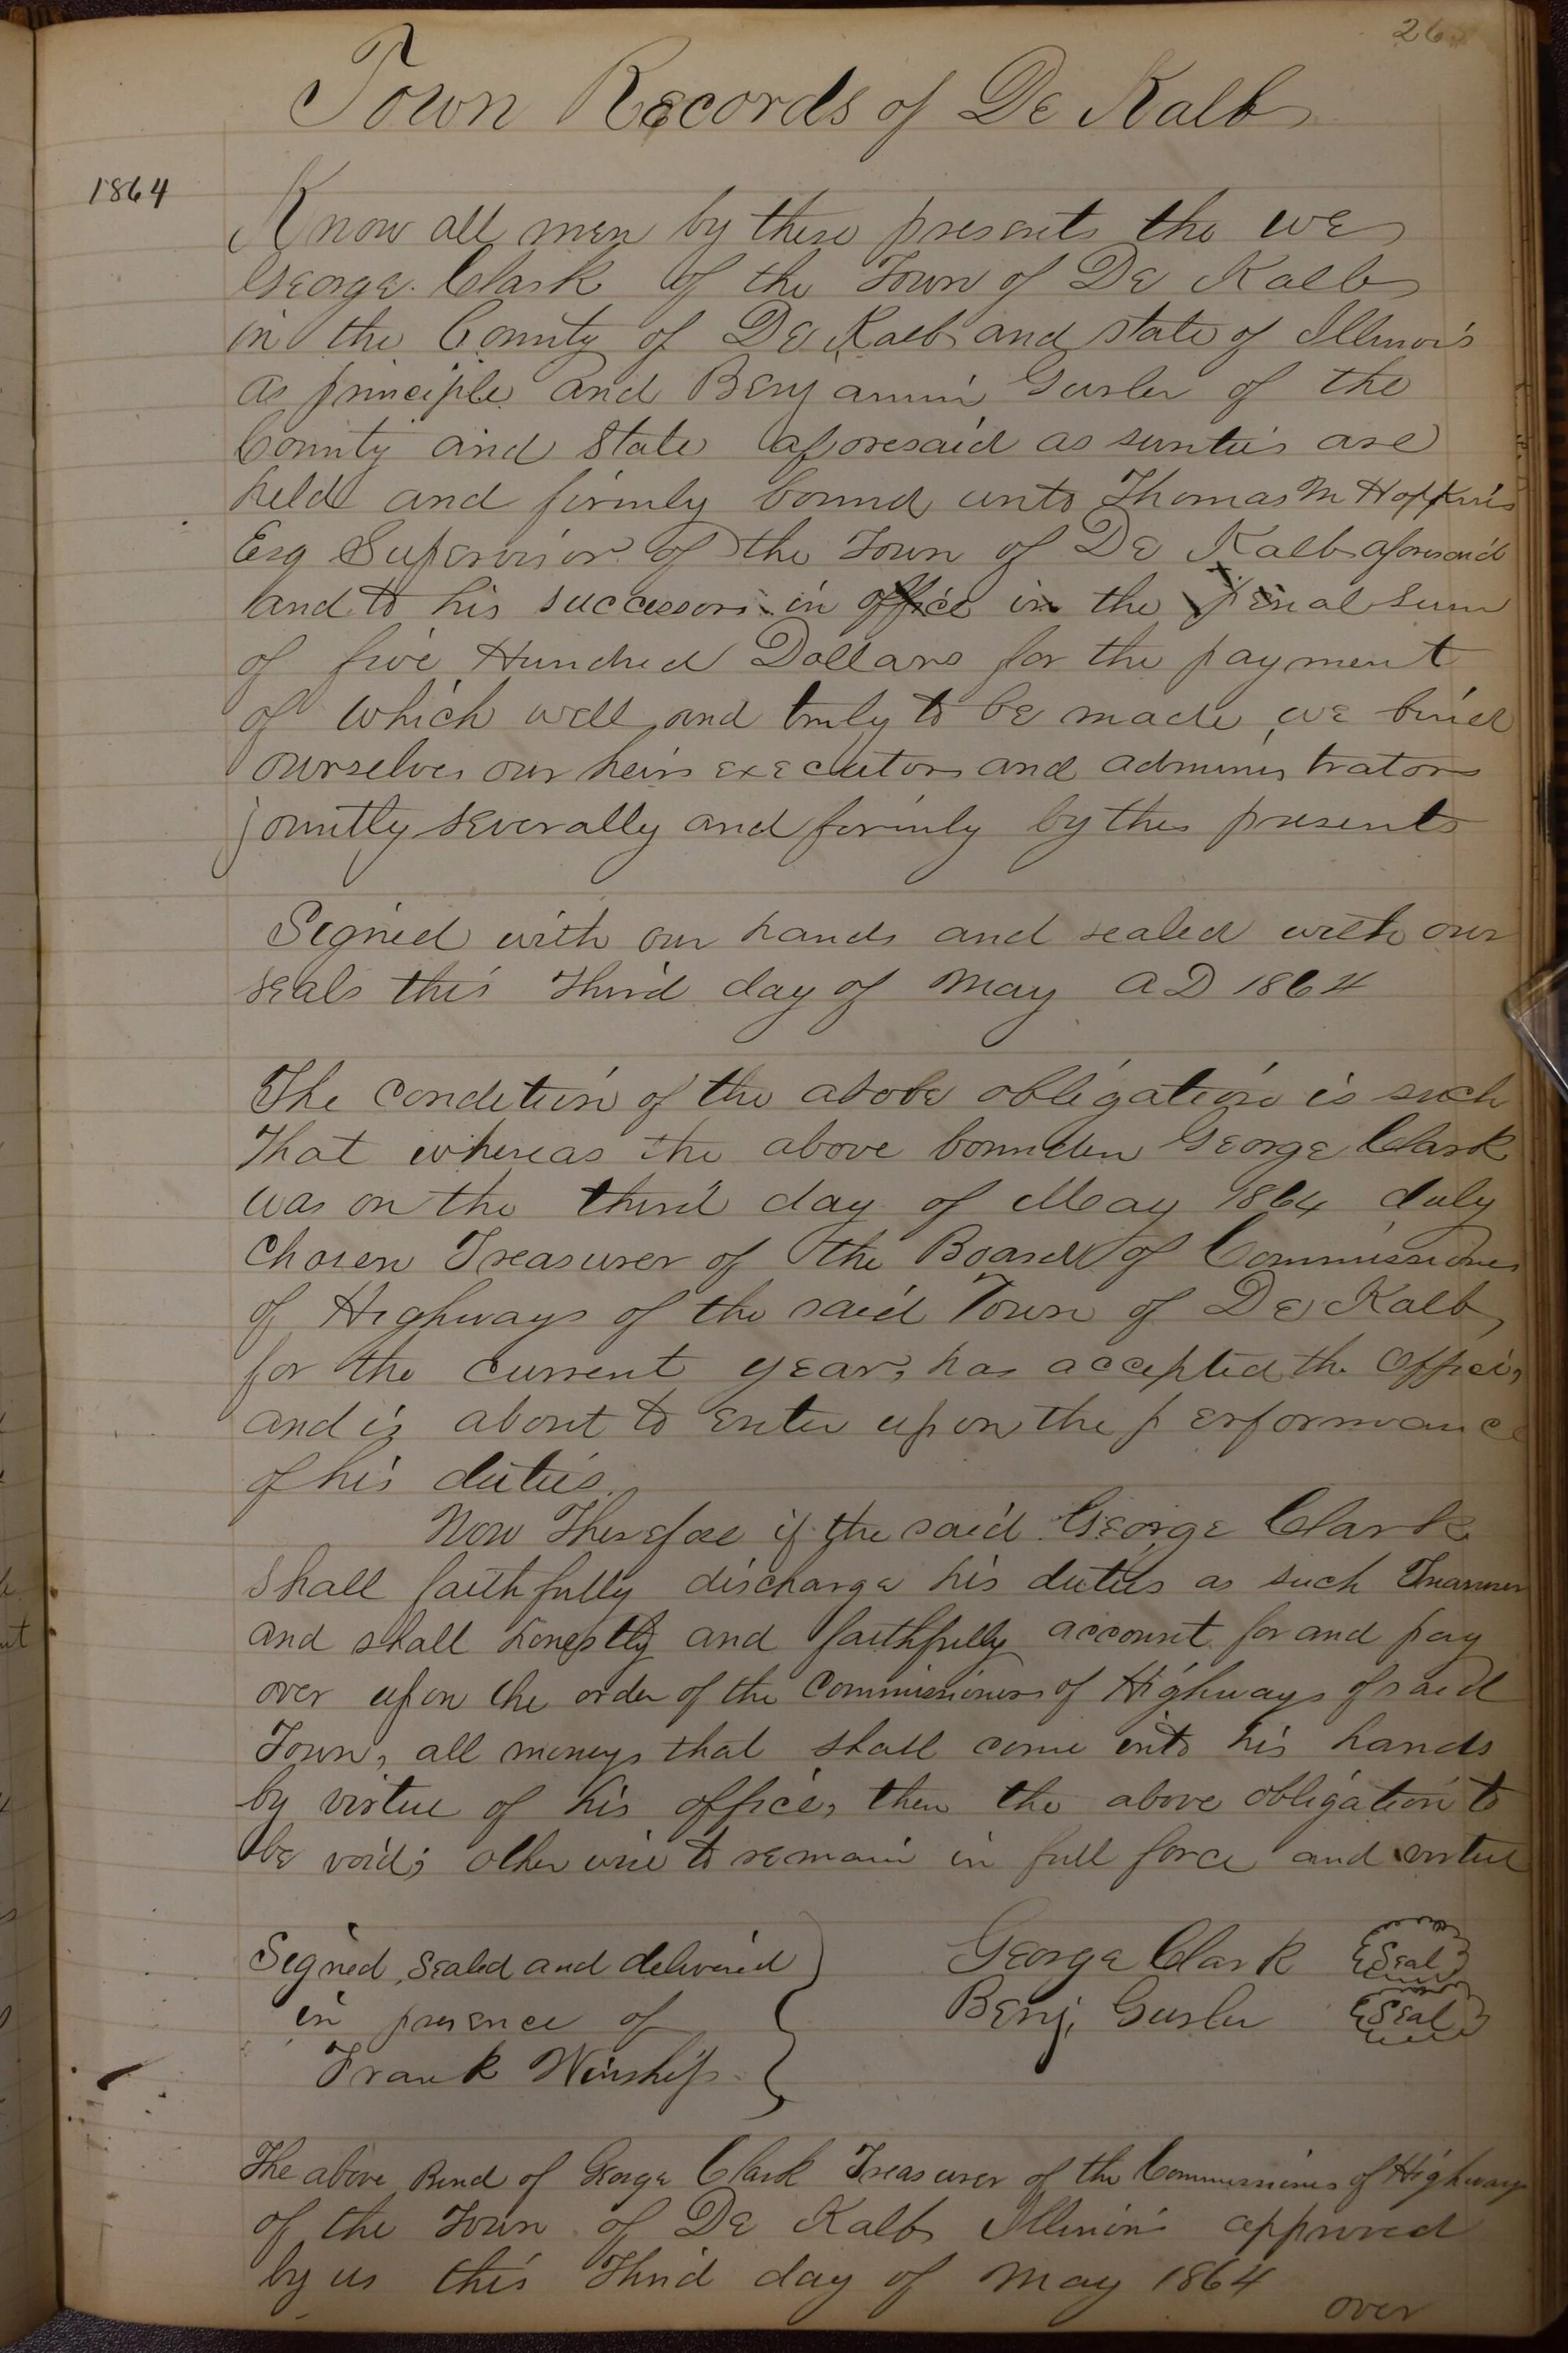 26
Town Records of De Kalb
1864
Know all men by these presents the we
George Clark of the Town of De Kalb
in the County of De Kalb and State of Illinois
as principle and Benjamin Gurler of the
County and State aforesaid as sureties are
held and firmly bound unto Thomas M Hopkins
Esq Supervisor of the Town of De Kalb aforesaid
and to his successors in office in the penal sum
of five Hundred Dollars for the payment
of which well and truly to be made, we bind
ourselves our heirs executors and administrators
jointly severally and firmly by these presents
Signed with our hands and sealed with our
seals this Third day of May AD 1864
The condition of the above obligation is such
That whereas the above bounden George Clark
was on the third day of May 1864 duly
Chosen Treasurer of the Board of Commissioners
of Highways of the said Town of De Kalb,
for the current year, has accepted the Office,
and is about to enter upon the performance
of his duties.
Now Therefore if the said George Clark
shall faithfully discharge his duties as such Treasurer
and shall honestly and faithfully account for and pay
over upon the order of the Commissioners of Highways of said
Town, all moneys that shall come into his hands
by virtue of his office, then the above obligation to
be void; otherwise to remain in full force and virtue
Signed, sealed and delivered
in presence of
Frank Winship
George Clark Seal
Benj. Gurler Seal
The above Bond of George Clark Treasurer of the Commissioners of Highways
of the Town of De Kalb Illinois approved
by us this Third day of May 1864
over